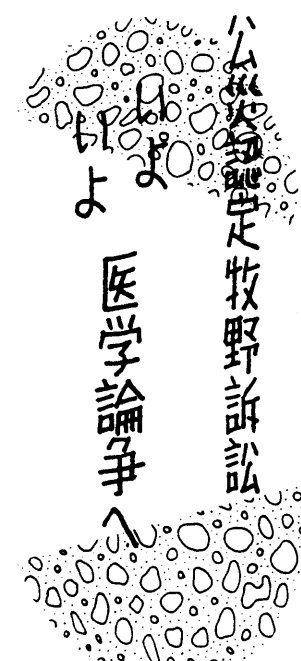 公災認定牧野訴訟
いよ
いよ 医学論争へ